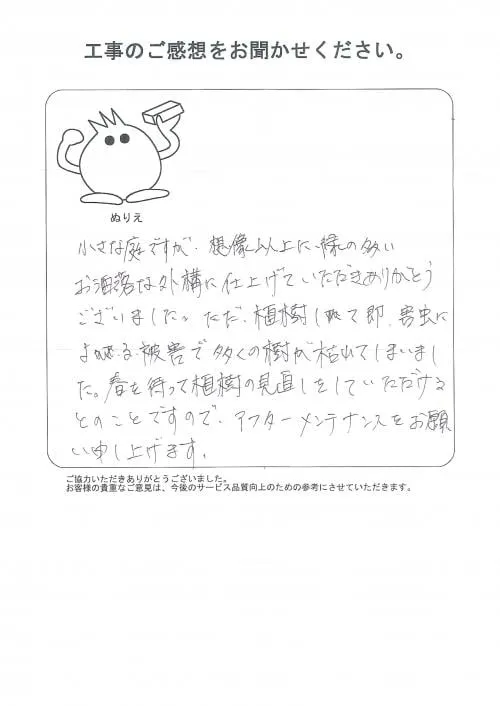 工事のご感想をお聞かせください。
ぬりえ
小さな庭ですが、想像以上に、緑の多い
お洒落な外構に仕上げていただきありがとう
ございました。ただ、植樹して即、害虫に
よる被害で多くの樹が枯れてしまいまし
た。春を待って植樹の見直しをしていただける
とのことですので、アフターメンテナンスをお願
い申し上げます。
ご協力いただきありがとうございました。
お客様の貴重なご意見は、今後のサービス品質向上のための参考にさせていただきます。